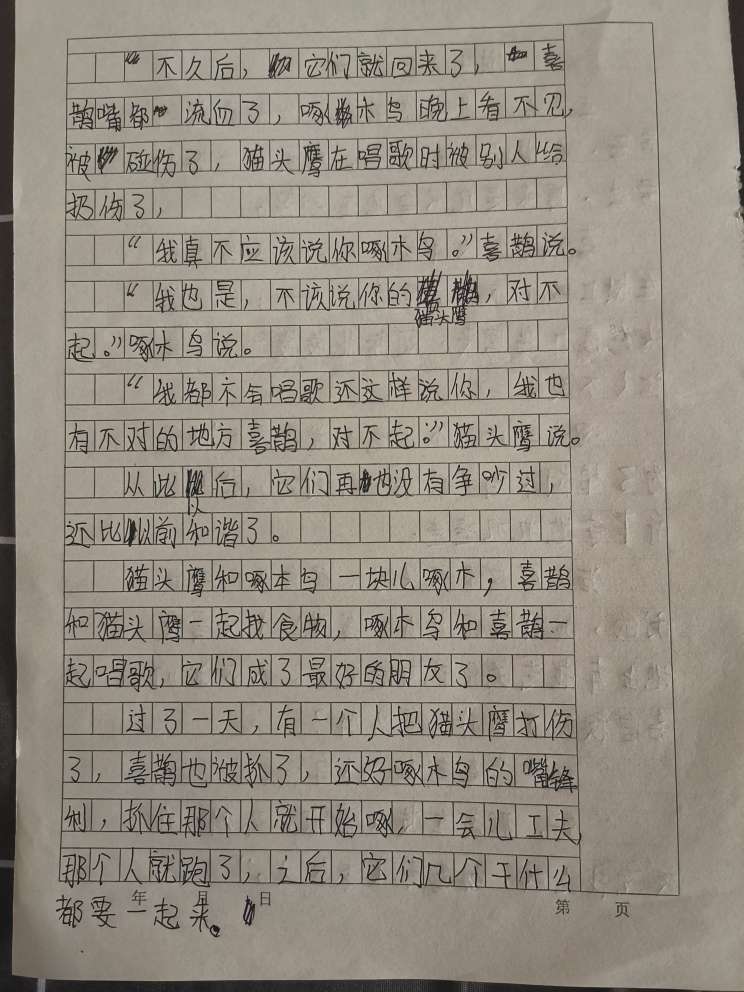 “不久后，它们就回来了，喜
鹊嘴都流血了，啄木鸟晚上看不见，
被碰伤了，猫头鹰在唱歌时被别人给
扔伤了，
“我真不应该说你啄木鸟。”喜鹊说。
“我也是，不该说你的，对不
猫头鹰
起。”啄木鸟说。
“我都不会唱歌还这样说你，我也
有不对的地方喜鹊，对不起。”猫头鹰说。
从此后，它们再也没有争吵过，
以
还比以前和谐了。
猫头鹰和啄本鸟一块儿啄木，喜鹊
和猫头鹰一起找食物，啄木鸟和喜鹊一
起唱歌，它们成了最好的朋友了。
过了一天，有一个人把猫头鹰打伤
了，喜鹊也被抓了，还好啄木鸟的嘴锋
利，抓住那个人就开始啄，一会儿工夫，
那个人就跑了，之后，它们几个干什么
年 月 日 第 页
都要一起来。